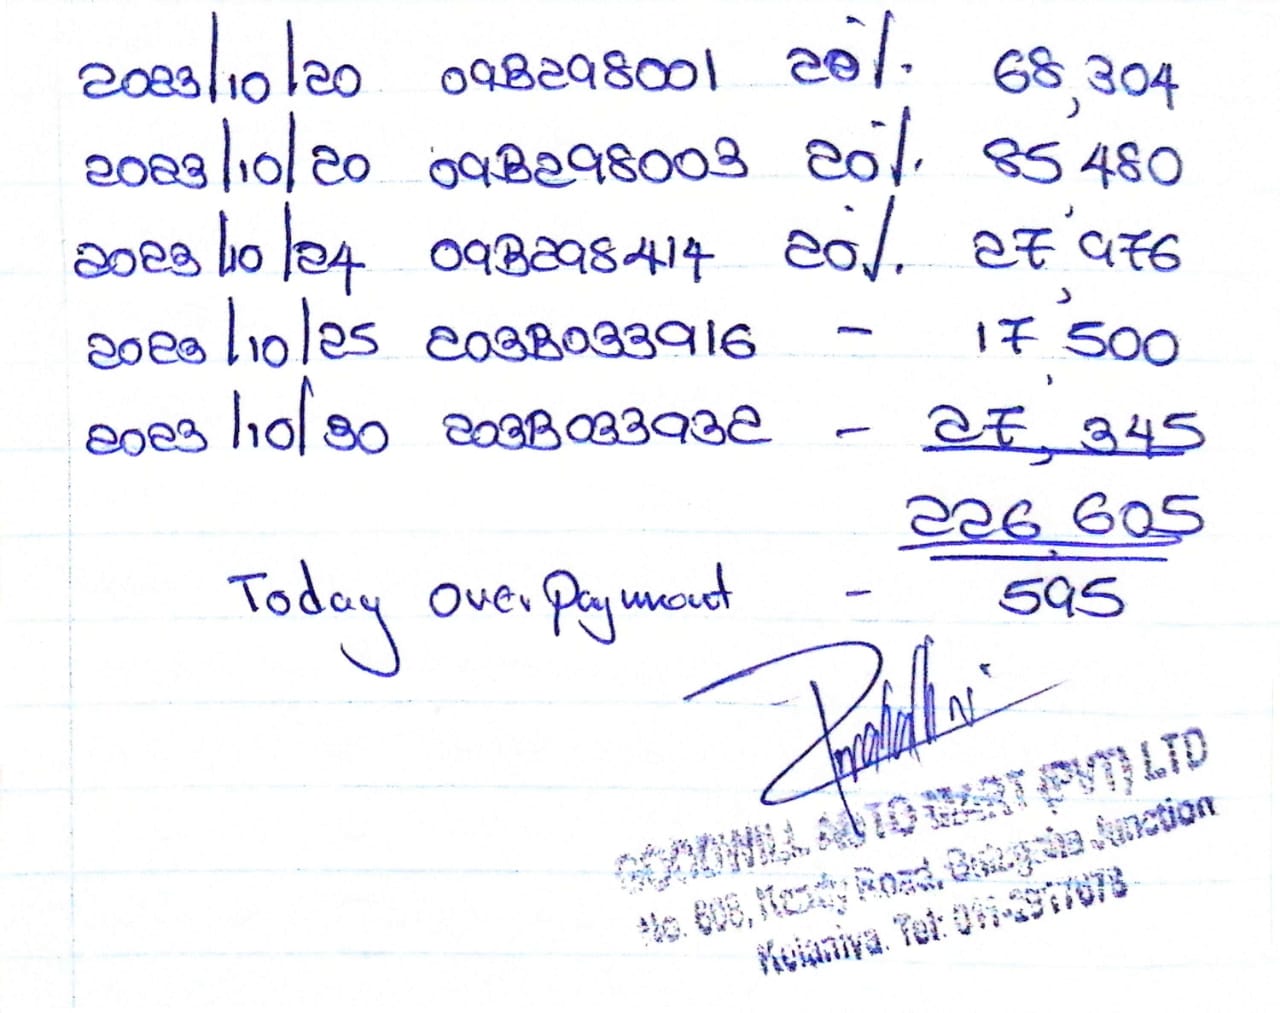 2023/10/20 09B298001 20%. 68,304
2023/10/20 09B298003 20%. 85,480
2023/10/24 09B298414 20%. 27,976
2023/10/25 203B033916 - 17,500
2023/10/30 203B033932 - 27,345
226,605
Today Over Payment - 595
GOODWILL AUTO MART (PVT) LTD
No. 608, Kandy Road, Junction
Kelaniya. Tel: 011-2917678